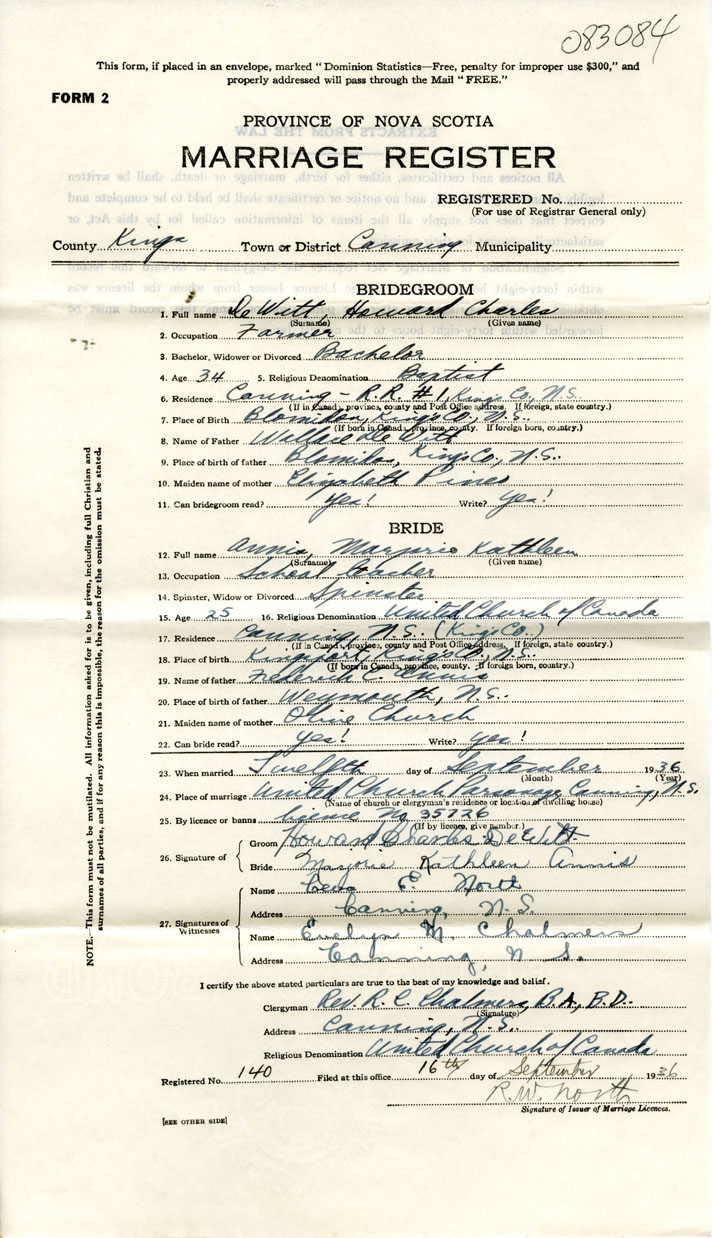 083084
This form, if placed in an envelope, marked "Dominion Statistics—Free, penalty for improper use $300," and
properly addressed will pass through the Mail "FREE."
FORM 2
PROVINCE OF NOVA SCOTIA
MARRIAGE REGISTER
REGISTERED No.
(For use of Registrar General only)
County Kings Town or District Canning Municipality
BRIDEGROOM
1. Full name DeWitt, Howard Charles
(Surname) (Given name)
2. Occupation Farmer
3. Bachelor, Widower or Divorced Bachelor
4. Age 34 5. Religious Denomination Baptist
6. Residence Canning - R.R. #1, Kings Co., N.S.
(If in Canada, province, county and Post Office address. If foreign, state country.)
7. Place of Birth Blomidon, Kings Co., N.S.
(If born in Canada, province, county. If foreign born, country.)
8. Name of Father Wallace De Witt
9. Place of birth of father Blomidon, Kings Co., N.S.
10. Maiden name of mother Elizabeth Pines
11. Can bridegroom read? Yes! Write? Yes!
BRIDE
12. Full name Annis, Marjorie Kathleen
(Surname) (Given name)
13. Occupation School Teacher
14. Spinster, Widow or Divorced Spinster
15. Age 25 16. Religious Denomination United Church of Canada
17. Residence Canning, N.S. (Kings Co.)
(If in Canada, province, county and Post Office address. If foreign, state country.)
18. Place of birth Kingsport, Kings Co., N.S.
(If born in Canada, province, county. If foreign born, country.)
19. Name of father Frederick C. Annis
20. Place of birth of father Weymouth, N.S.
21. Maiden name of mother Olive Church
22. Can bride read? Yes! Write? Yes!
23. When married Twelfth day of September 1936
(Month) (Year)
24. Place of marriage United Church Parsonage Canning, N.S.
(Name of church or clergyman's residence or location of dwelling house)
25. By licence or banns License No 35726
(If by licence, give number.)
26. Signature of
Groom Howard Charles DeWitt
Bride Marjorie Kathleen Annis
27. Signatures of Witnesses
Name E. North
Address Canning, N.S.
Name Evelyn M. Chalmers
Address Canning, N S.
I certify the above stated particulars are true to the best of my knowledge and belief.
Clergyman Rev. R. C. Chalmers, B.A., B.D.
(Signature)
Address Canning, N.S.
Religious Denomination United Church of Canada
Registered No. 140 Filed at this office 16th day of September 1936
R.W. North
Signature of Issuer of Marriage Licences.
[SEE OTHER SIDE]
NOTE. This form must not be mutilated. All information asked for is to be given, including full Christian and
surnames of all parties, and if for any reason this is impossible, the reason for the omission must be stated.